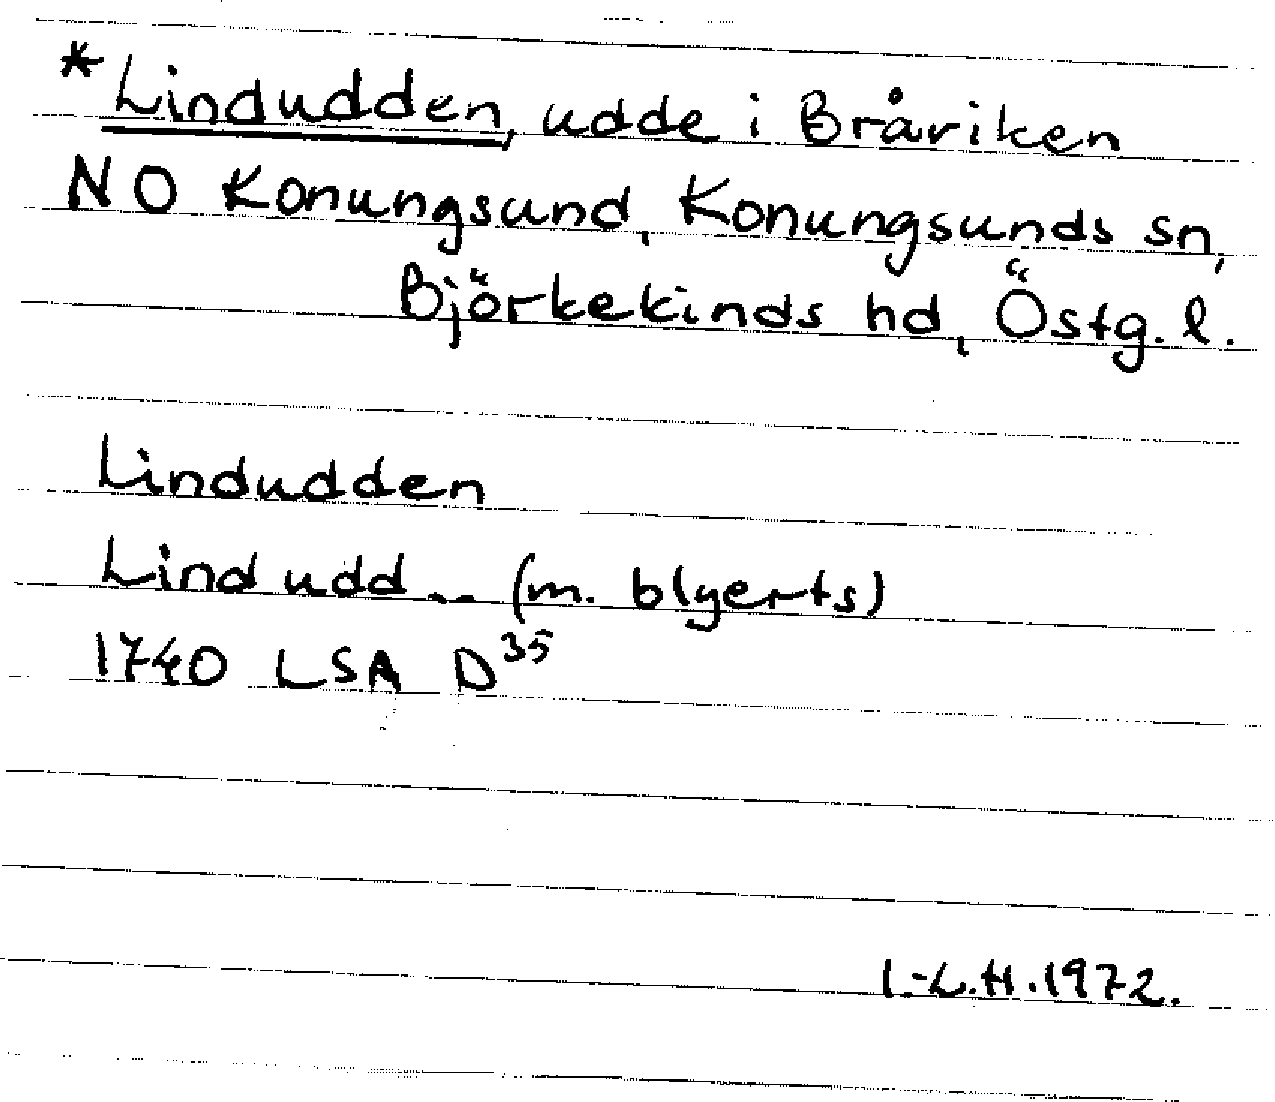 *Lindudden, udde i Bråviken
NO Konungsund, Konungsunds sn,
Björkekinds hd, Östg. l.
Lindudden
Lindudd-- (m. blyerts)
1740 LSA D35
I.-L.H.1972.